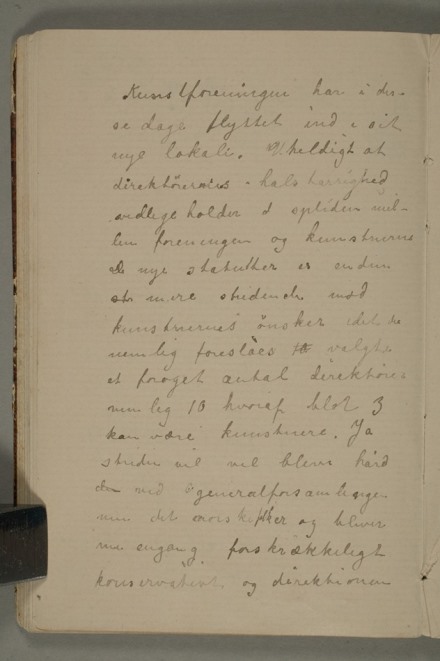 Kunstforeningen har i dis-
se dage flyttet ind i sit
nye lokale. Uheldigt at
direktörernes halsstarrighed
vedlige holder d splid mel-
len foreningen og kunstnerne
De nye statuther er endnu
mere stridende mod
kunstnernes önsker idet de
nemlig foreslåes valgt
et foröget antal direktörer
nemlig 10 hvoraf blot 3
kan være kunstnere. Ja
striden vil vel blive hård
ved generalforsamlingen
men det og bliver
nu engang forskrækkeligt
konservativt og direktionen